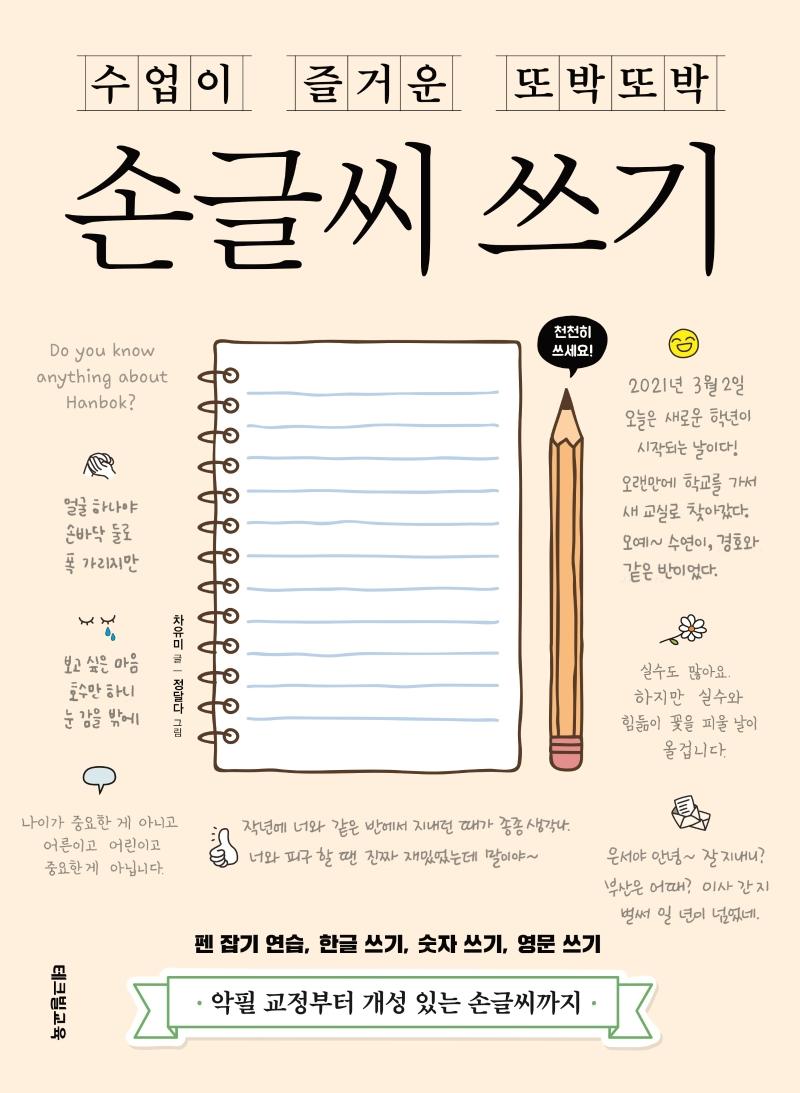 수업이 즐거운 또박또박
손글씨 쓰기
천천히
쓰세요!
Do you know
anything about
Hanbok?
얼굴 하나야
손바닥 둘로
폭 가리지만
보고 싶은 마음
호수만 하니
눈 감을 밖에
차유미 글 | 정달다 그림
2021년 3월 2일
오늘은 새로운 학년이
시작되는 날이다!
오랜만에 학교를 가서
새 교실로 찾아갔다.
오예~ 수연이, 경호와
같은 반이었다.
실수도 많아요.
하지만 실수와
힘듦이 꽃을 피울 날이
올겁니다.
나이가 중요한 게 아니고
어른이고 어린이고
중요한게 아닙니다.
작년에 너와 같은 반에서 지내던 때가 종종 생각나.
너와 피구 할 땐 진짜 재밌었는데 말이야~
은서야 안녕~ 잘 지내니?
부산은 어때? 이사 간지
벌써 일 년이 넘었네.
펜 잡기 연습, 한글 쓰기, 숫자 쓰기, 영문 쓰기
· 악필 교정부터 개성 있는 손글씨까지 ·
테크빌교육